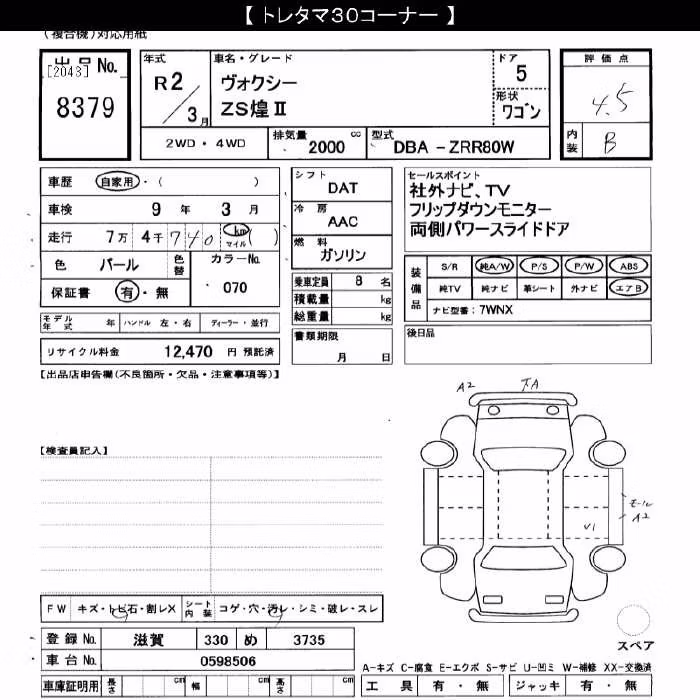 【 トレタマ３０コーナー 】
(複合機)対応用紙
出品 No.
[2043]
8379
年式
R 2 / 3 月
車名・グレード
ヴォクシー
ZS煌Ⅱ
ドア
5
形状
ワゴン
2WD ・ 4WD
排気量 2000 cc
型式 DBA －ZRR80W
評価点
4.5
内装 B
車歴 自家用・( )
車検 9 年 3 月
走行 7万 4千 7 4 0 km マイル ( )
色 パール 色替 カラーNo.
保証書 有・無 070
モデル年式 年 ハンドル 左・右 ディーラー・並行
リサイクル料金 12,470 円 預託済
シフト
DAT
冷房
AAC
燃料
ガソリン
乗車定員 8 名
積載量 kg
総重量 kg
書類期限
月 日
セールスポイント
社外ナビ、TV
フリップダウンモニター
両側パワースライドドア
装備品
S/R 純A/W P/S P/W ABS
純TV 純ナビ 革シート 外ナビ エアB
ナビ型番：7WNX
後日品
【出品店申告欄(不良箇所・欠品・注意事項等)】
【検査員記入】
A2
A
モール
A2
U1
スペア
FW キズ・トビ石・割レX シート内装 コゲ・穴・汚レ・シミ・破レ・スレ
登録 No. 滋賀 330 め 3735
車台 No. 0598506
車庫証明用 長さ cm 幅 cm 高さ cm
A-キズ C-腐食 E-エクボ S-サビ U-凹ミ W-補修 XX-交換済
工具 有・無 ジャッキ 有・無